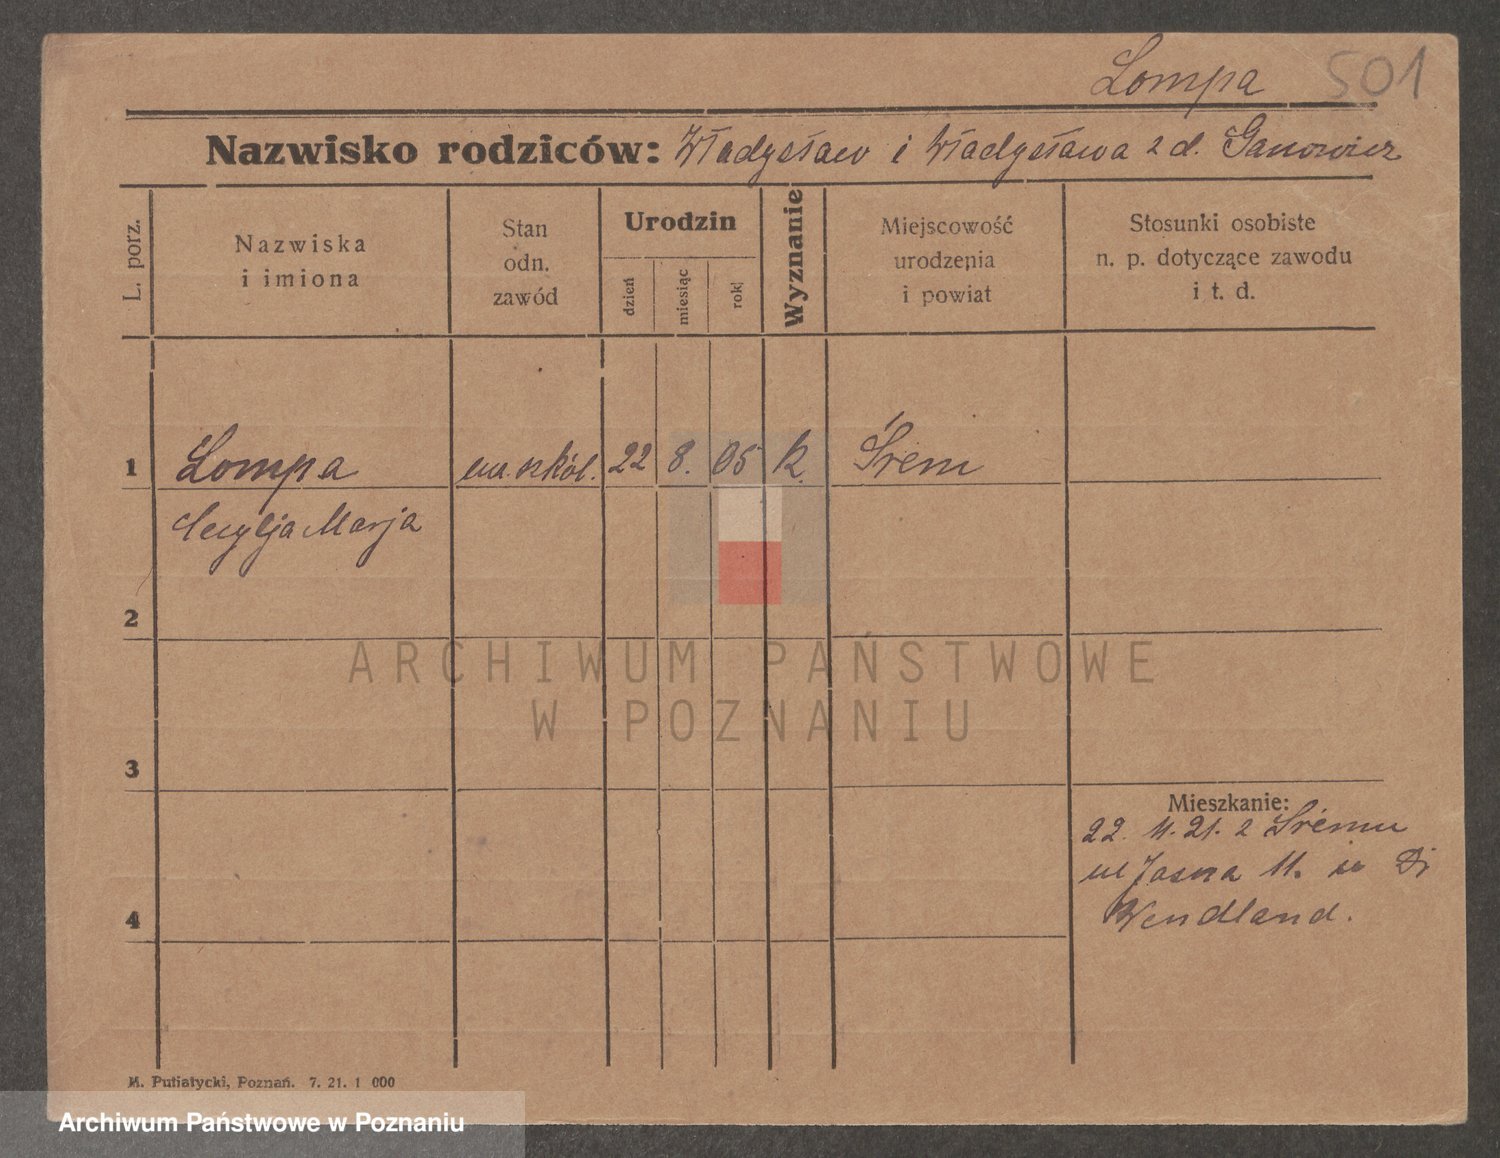 Lompa 501
Nazwisko rodziców: Władysław i Władysława z d. Ganowicz
L. porz.
Nazwiska
i imiona
Stan
odn.
zawód
Urodzin
dzień
miesiąc
rok
Wyznanie
Miejscowość
urodzenia
i powiat
Stosunki osobiste
n. p. dotyczące zawodu
i t. d.
1 Lompa szkół. 22 8. 05 k. Śrem
Cecylja Marja
2
ARCHIWUM PAŃSTWOWE
W POZNANIU
3
Mieszkanie:
22. 11. 21. z Śremu
ul Jasna 11.
Wendland.
4
M. Putiatycki, Poznań. 7. 21. 1 000
Archiwum Państwowe w Poznaniu